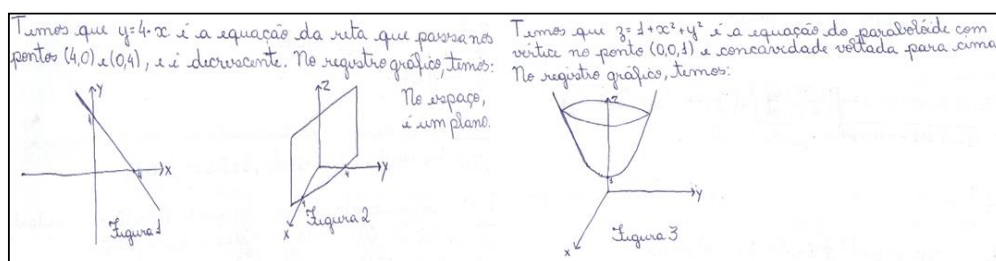 Temos que y=4-x é a equação da reta que passa nos
pontos (4,0) e (0,4), e é decrescente. No registro gráfico, temos:
No espaço,
é um plano.
Y
4
4
X
Figura 1
Z
Y
4
4
X
Figura 2
Temos que z=1+x²+y² é a equação do parabolóide com
vértice no ponto (0,0,1) e concavidade voltada para cima
No registro gráfico, temos:
Z
1
Y
X
Figura 3